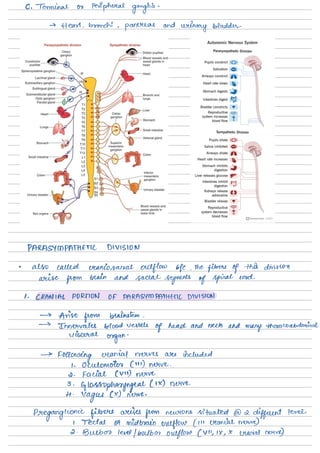 C. Terminal or Peripheral ganglia -
→ Heart, bronchi, pancreas and urinary bladder
Parasympathetic division
Sympathetic division
Autonomic Nervous System
Parasympathetic Division
Pupils constrict
Salivation
Airways constrict
Heart rate slows
Stomach digests
Intestines digest
Bladder constricts
Reproductive system increases blood flow
Sympathetic Division
Pupils dilate
Saliva inhibited
Airways dilate
Heart rate increases
Stomach inhibits digestion
Liver releases glucose
Intestines inhibit digestion
Kidneys release adrenaline
Bladder relaxes
Reproductive system decreases blood flow
Ciliary ganglion
Lacrimal gland
Submaxillary ganglion
Sublingual gland
Otic ganglion
Parotid gland
Heart
Lungs
Stomach
Small intestine
Colon
Urinary bladder
Sex organs
Dilator pupillae
Blood vessels and sweat glands in head
Heart
Bronchi and lungs
Liver
Celiac ganglion
Stomach
Small intestine
Adrenal gland
Superior mesenteric ganglion
Colon
Inferior mesenteric ganglion
Urinary bladder
Blood vessels and sweat glands in lower limb
PARASYMPATHETIC DIVISION
• also called craniosacral outflow b/c the fibres of this division
arise from brain and sacral segments of spinal cord.
1. CRANIAL PORTION OF PARASYMPATHETIC DIVISION
→ Arise from brainstem.
→ Innervates blood vessels of head and neck and many thoracoabdominal
visceral organ.
→ Following cranial nerves are included
1. Oculomotor (III) nerve.
2. Facial (VII) nerve
3. Glossopharyngeal (IX) nerve.
4. Vagus (X) nerve.
Preganglionic fibers arises from neurons situated @ 2 different level
1. Tectal or midbrain outflow (III cranial nerve)
2. Bulbar level/bulbar outflow (VII, IX, X cranial nerve)